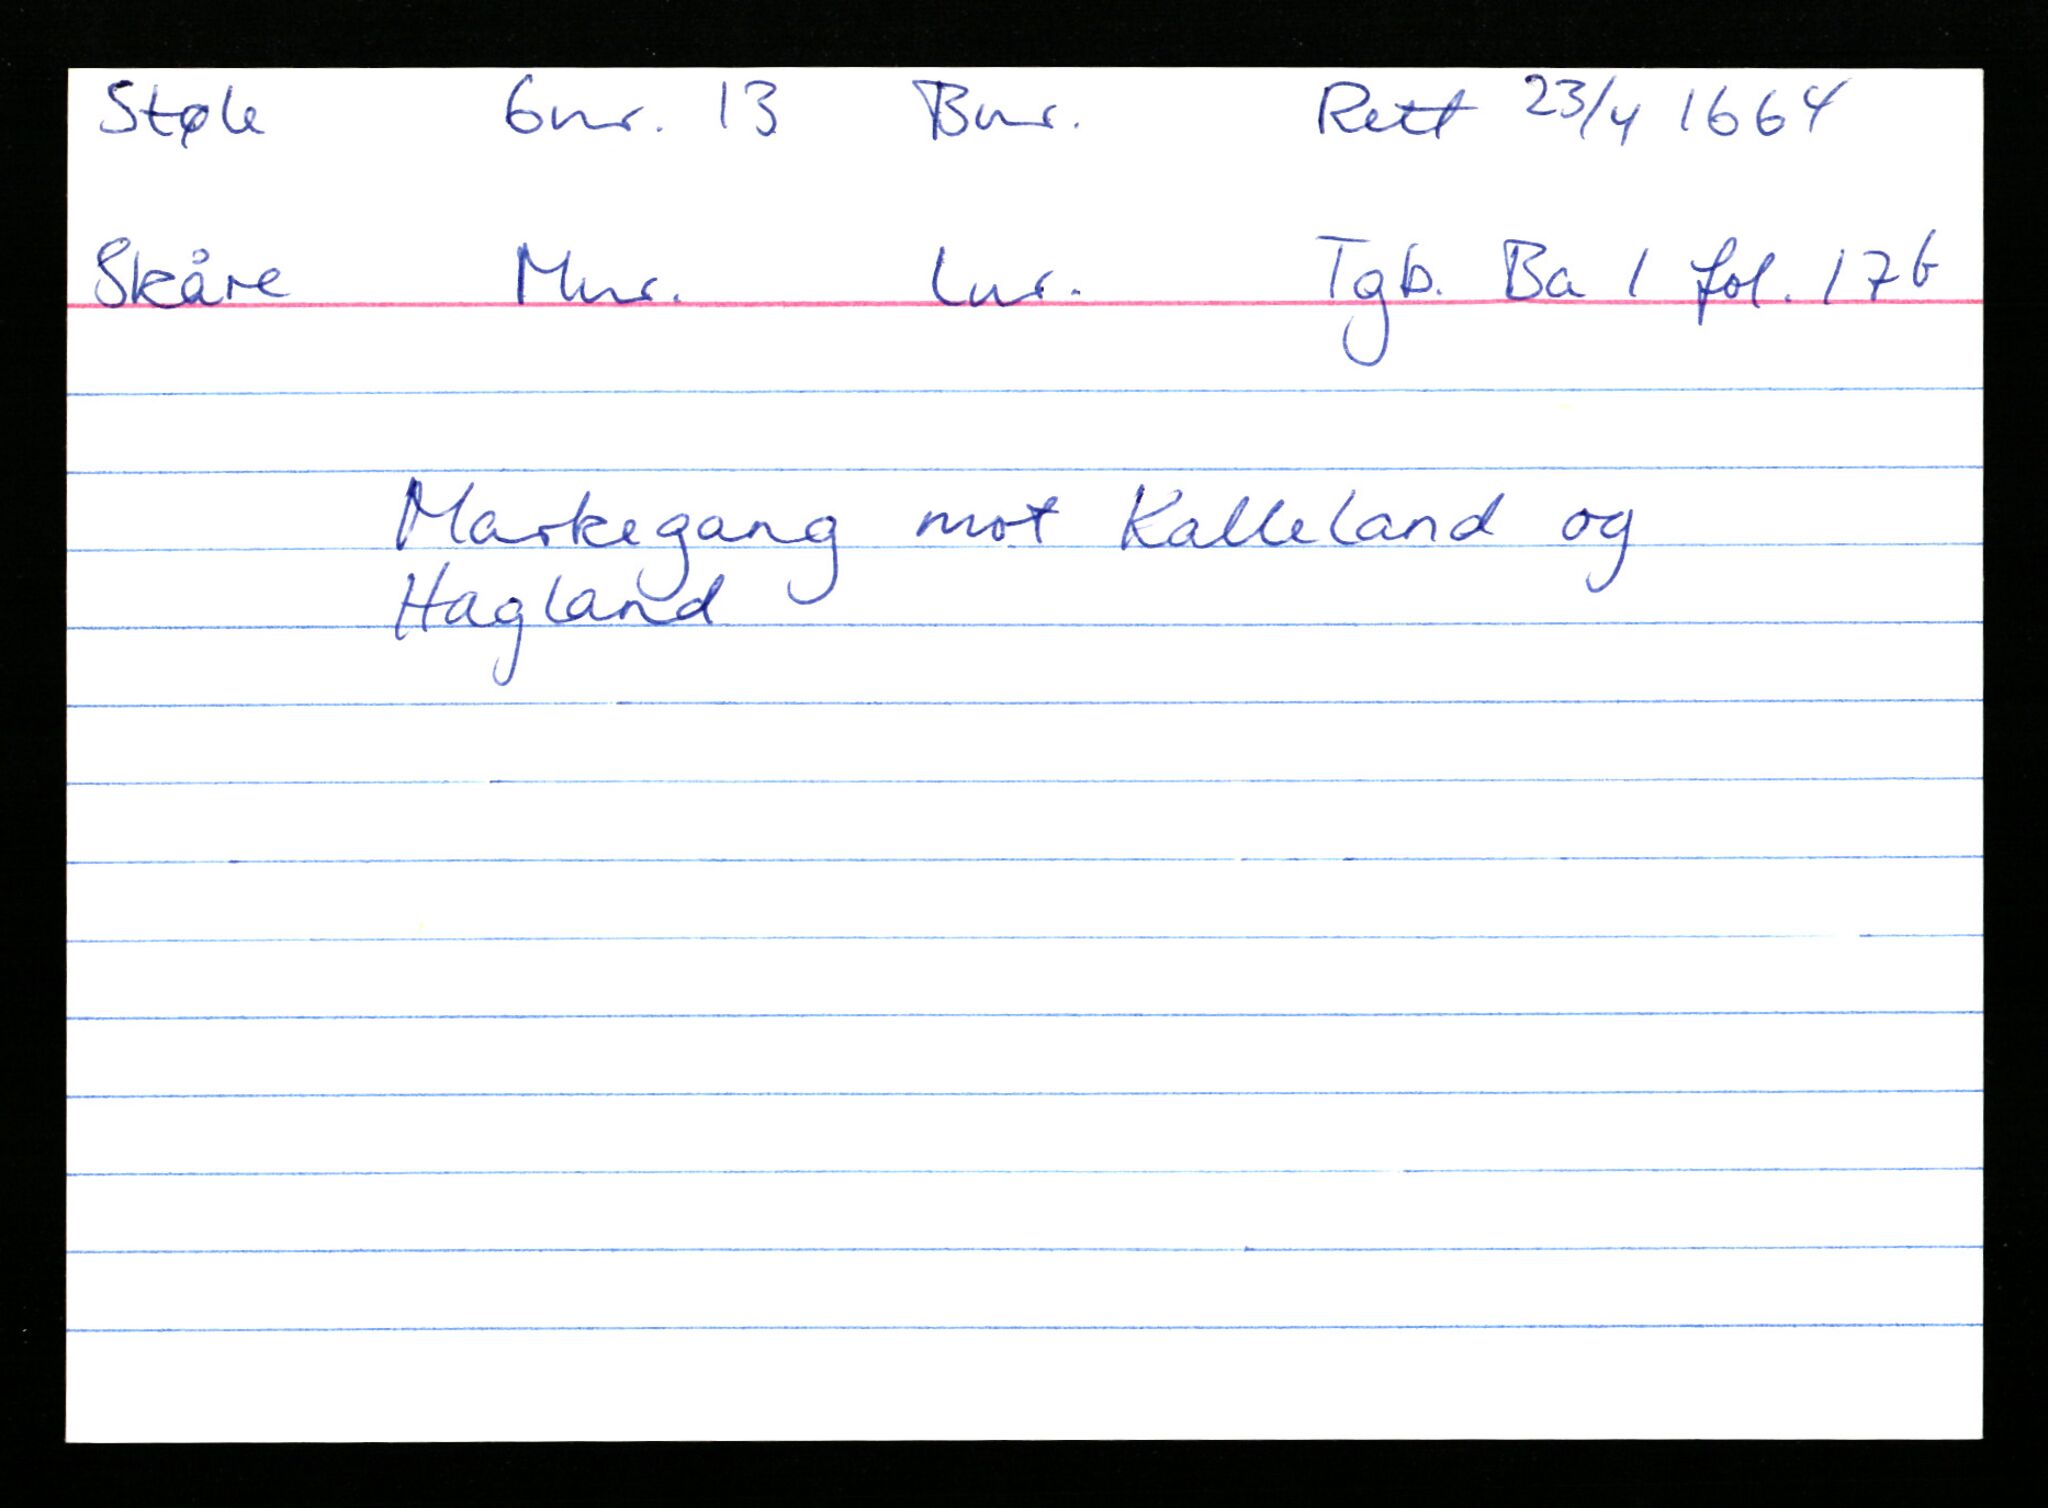 Støle Gnr. 13 Bnr. Rett 23/4 1664
Skåre Mnr. Lnr. Tgb. Ba 1 fol. 17b
Markegang mot Kalleland og
Hagland